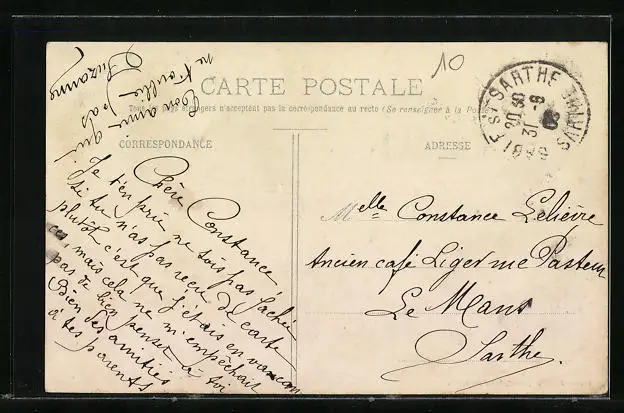 10
CARTE POSTALE
Tous les pays étrangers n'acceptent pas la correspondance au recto (Se renseigner à la Poste)
CORRESPONDANCE
ADRESSE
SARTHE
20 30
31 - 8
08
SARTHE
Chère Constance,
Je t'en prie ne sois pas fachée
si tu n'as pas reçu de carte
plutôt c'est que j'étais en vacan
ces, mais cela ne m'empêchait
pas de bien penser à toi
Bien des amitiés
à tes parents
Ton amie qui
ne t'oublie pas
Suzanne
Melle Constance Lelièvre
Ancien café Liger rue Pasteur
Le Mans
Sarthe.